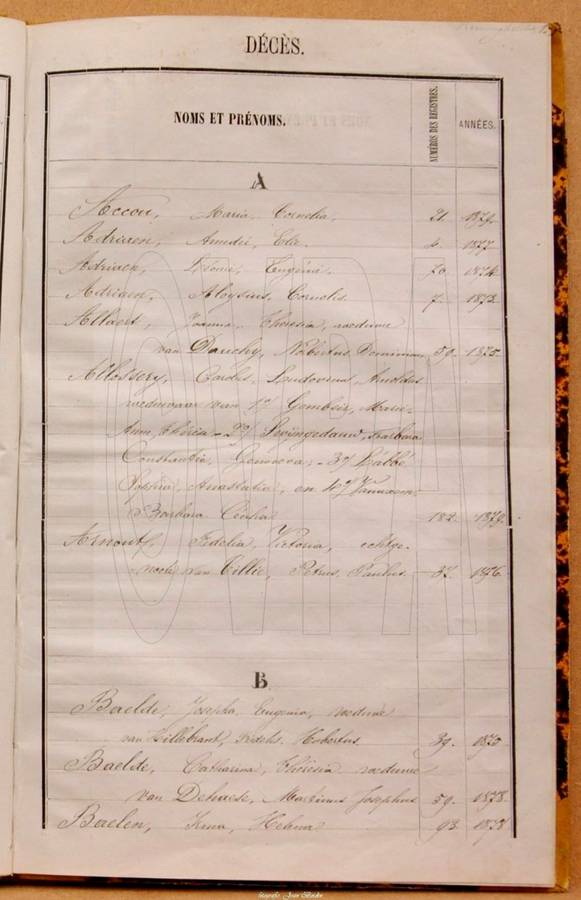 DÉCÈS.
NOMS ET PRÉNOMS. NUMÉROS DES REGISTRES. ANNÉES.
A
Accou, Maria Cornelia, 21. 1879.
Adriaen, Amedié, Elie. 4. 1877.
Adriaen, Eugénie. 70. 1874.
Adriaen, Aloysius, Cornelis. 7. 1873.
Allaert, Joanna, Theresia, weduwe
van Dauchy, Norbertus, Dominicus, 59. 1875.
Allossery, Carolus, Ludovicus, Arnoldus
weduwaar van 1º/ Gombeir, Marie-
Anne, 2º/ Swijngedauw, Barbara
Constantia, Genoveva, 3º/ Babbe
Sophia, Anastatia, en 4º/
Barbara Cecilia 182. 1879.
Arnout, Fidelia, Victoria, echtge-
noote van Tillie, Petrus, Paulus 37. 1876.
B
Baelde, Josepha, Eugenia, weduwe
van Hillebrant, Hubertus 39. 1870
Baelde, Catharina, Theresia weduwe
van Delhaese, Josephus 59. 1878.
Baelen, Irma, Helena 93. 1878